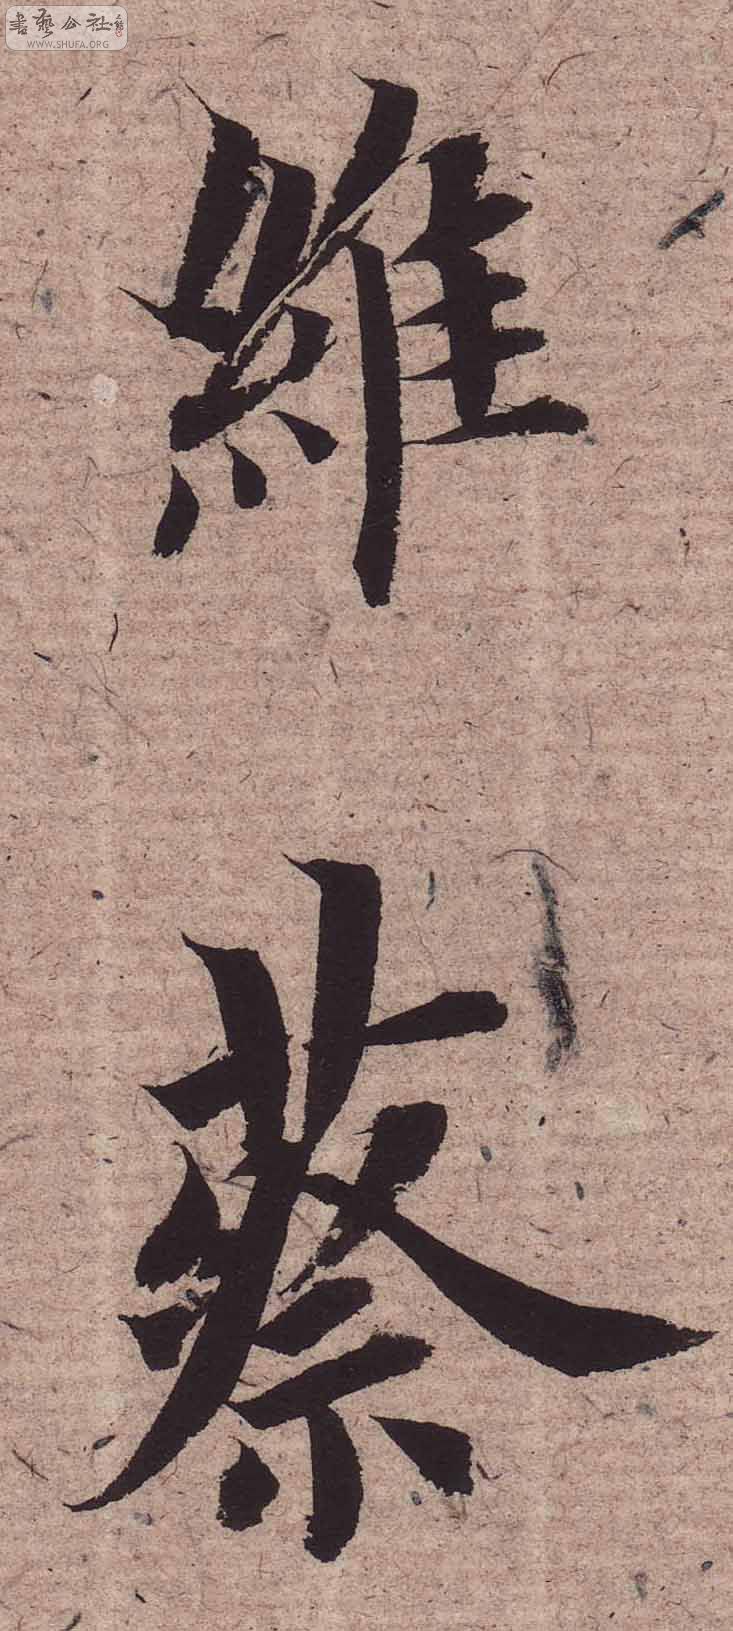 書藝公社
WWW.SHUFA.ORG
維
蔡